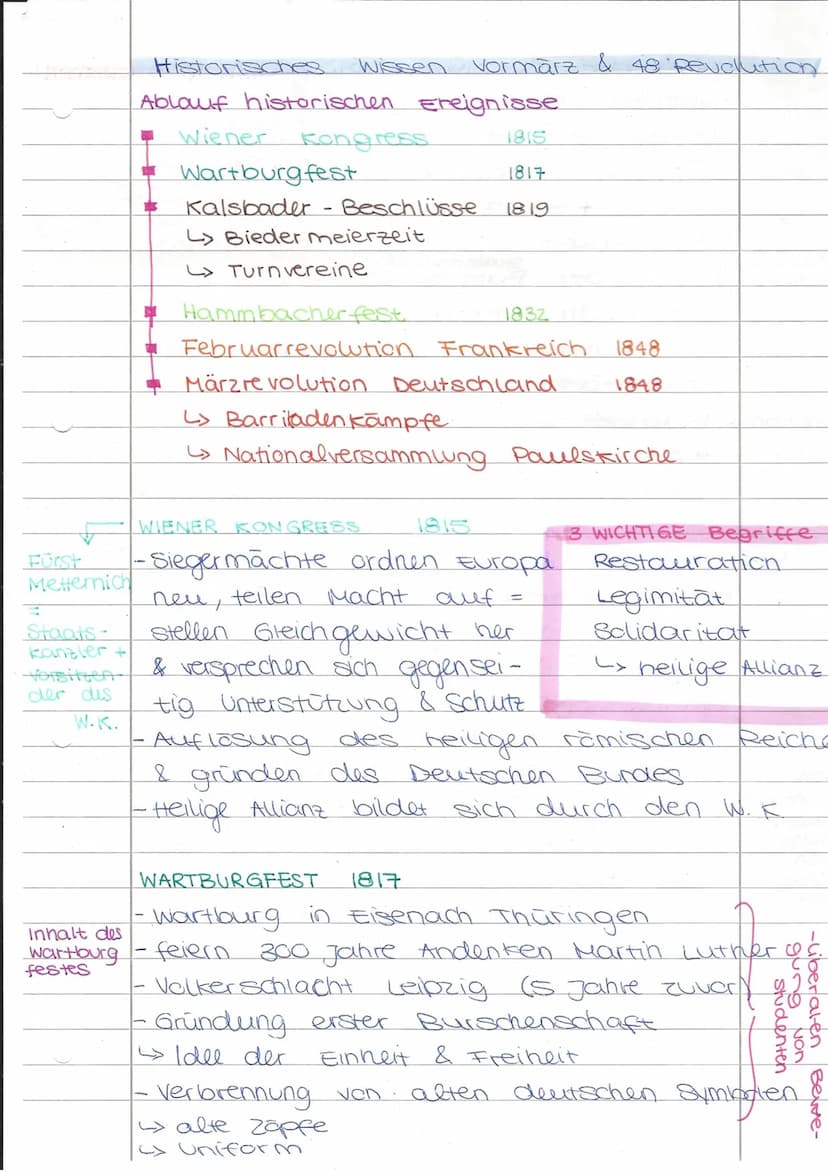 Historisches Wissen Vormärz & 48' Revolution
Ablauf historischen Ereignisse
Wiener Kongress 1815
Wartburgfest 1817
Kalsbader - Beschlüsse 1819
↳ Biedermeierzeit
↳ Turnvereine
Hammbacherfest 1832
Februarrevolution Frankreich 1848
Märzrevolution Deutschland 1848
↳ Barrikadenkämpfe
↳ Nationalversammlung Paulskirche
WIENER KONGRESS 1815
- Siegermächte ordnen Europa
neu, teilen Macht auf =
stellen Gleichgewicht her
& versprechen sich gegensei-
tig Unterstützung & Schutz
- Auflösung des heiligen römischen Reichs
& gründen des Deutschen Bundes
- Heilige Allianz bildet sich durch den W. K.
Fürst
Metternich
=
Staats-
kanzler +
Vorsitzen-
der des
W.K.
3 WICHTIGE Begriffe
Restauration
Legimität
Solidarität
↳ heilige Allianz
WARTBURGFEST 1817
- Wartburg in Eisenach Thüringen
- feiern 300 Jahre Andenken Martin Luther
- Völkerschlacht Leipzig (5 Jahre zuvor)
- Gründung erster Burschenschaft
↳ Idee der Einheit & Freiheit
- Verbrennung von alten deutschen Symbolen
↳ alte Zöpfe
↳ Uniform
Inhalt des
Wartburg
festes
- Liberalen Bewe-
gung von
Studenten